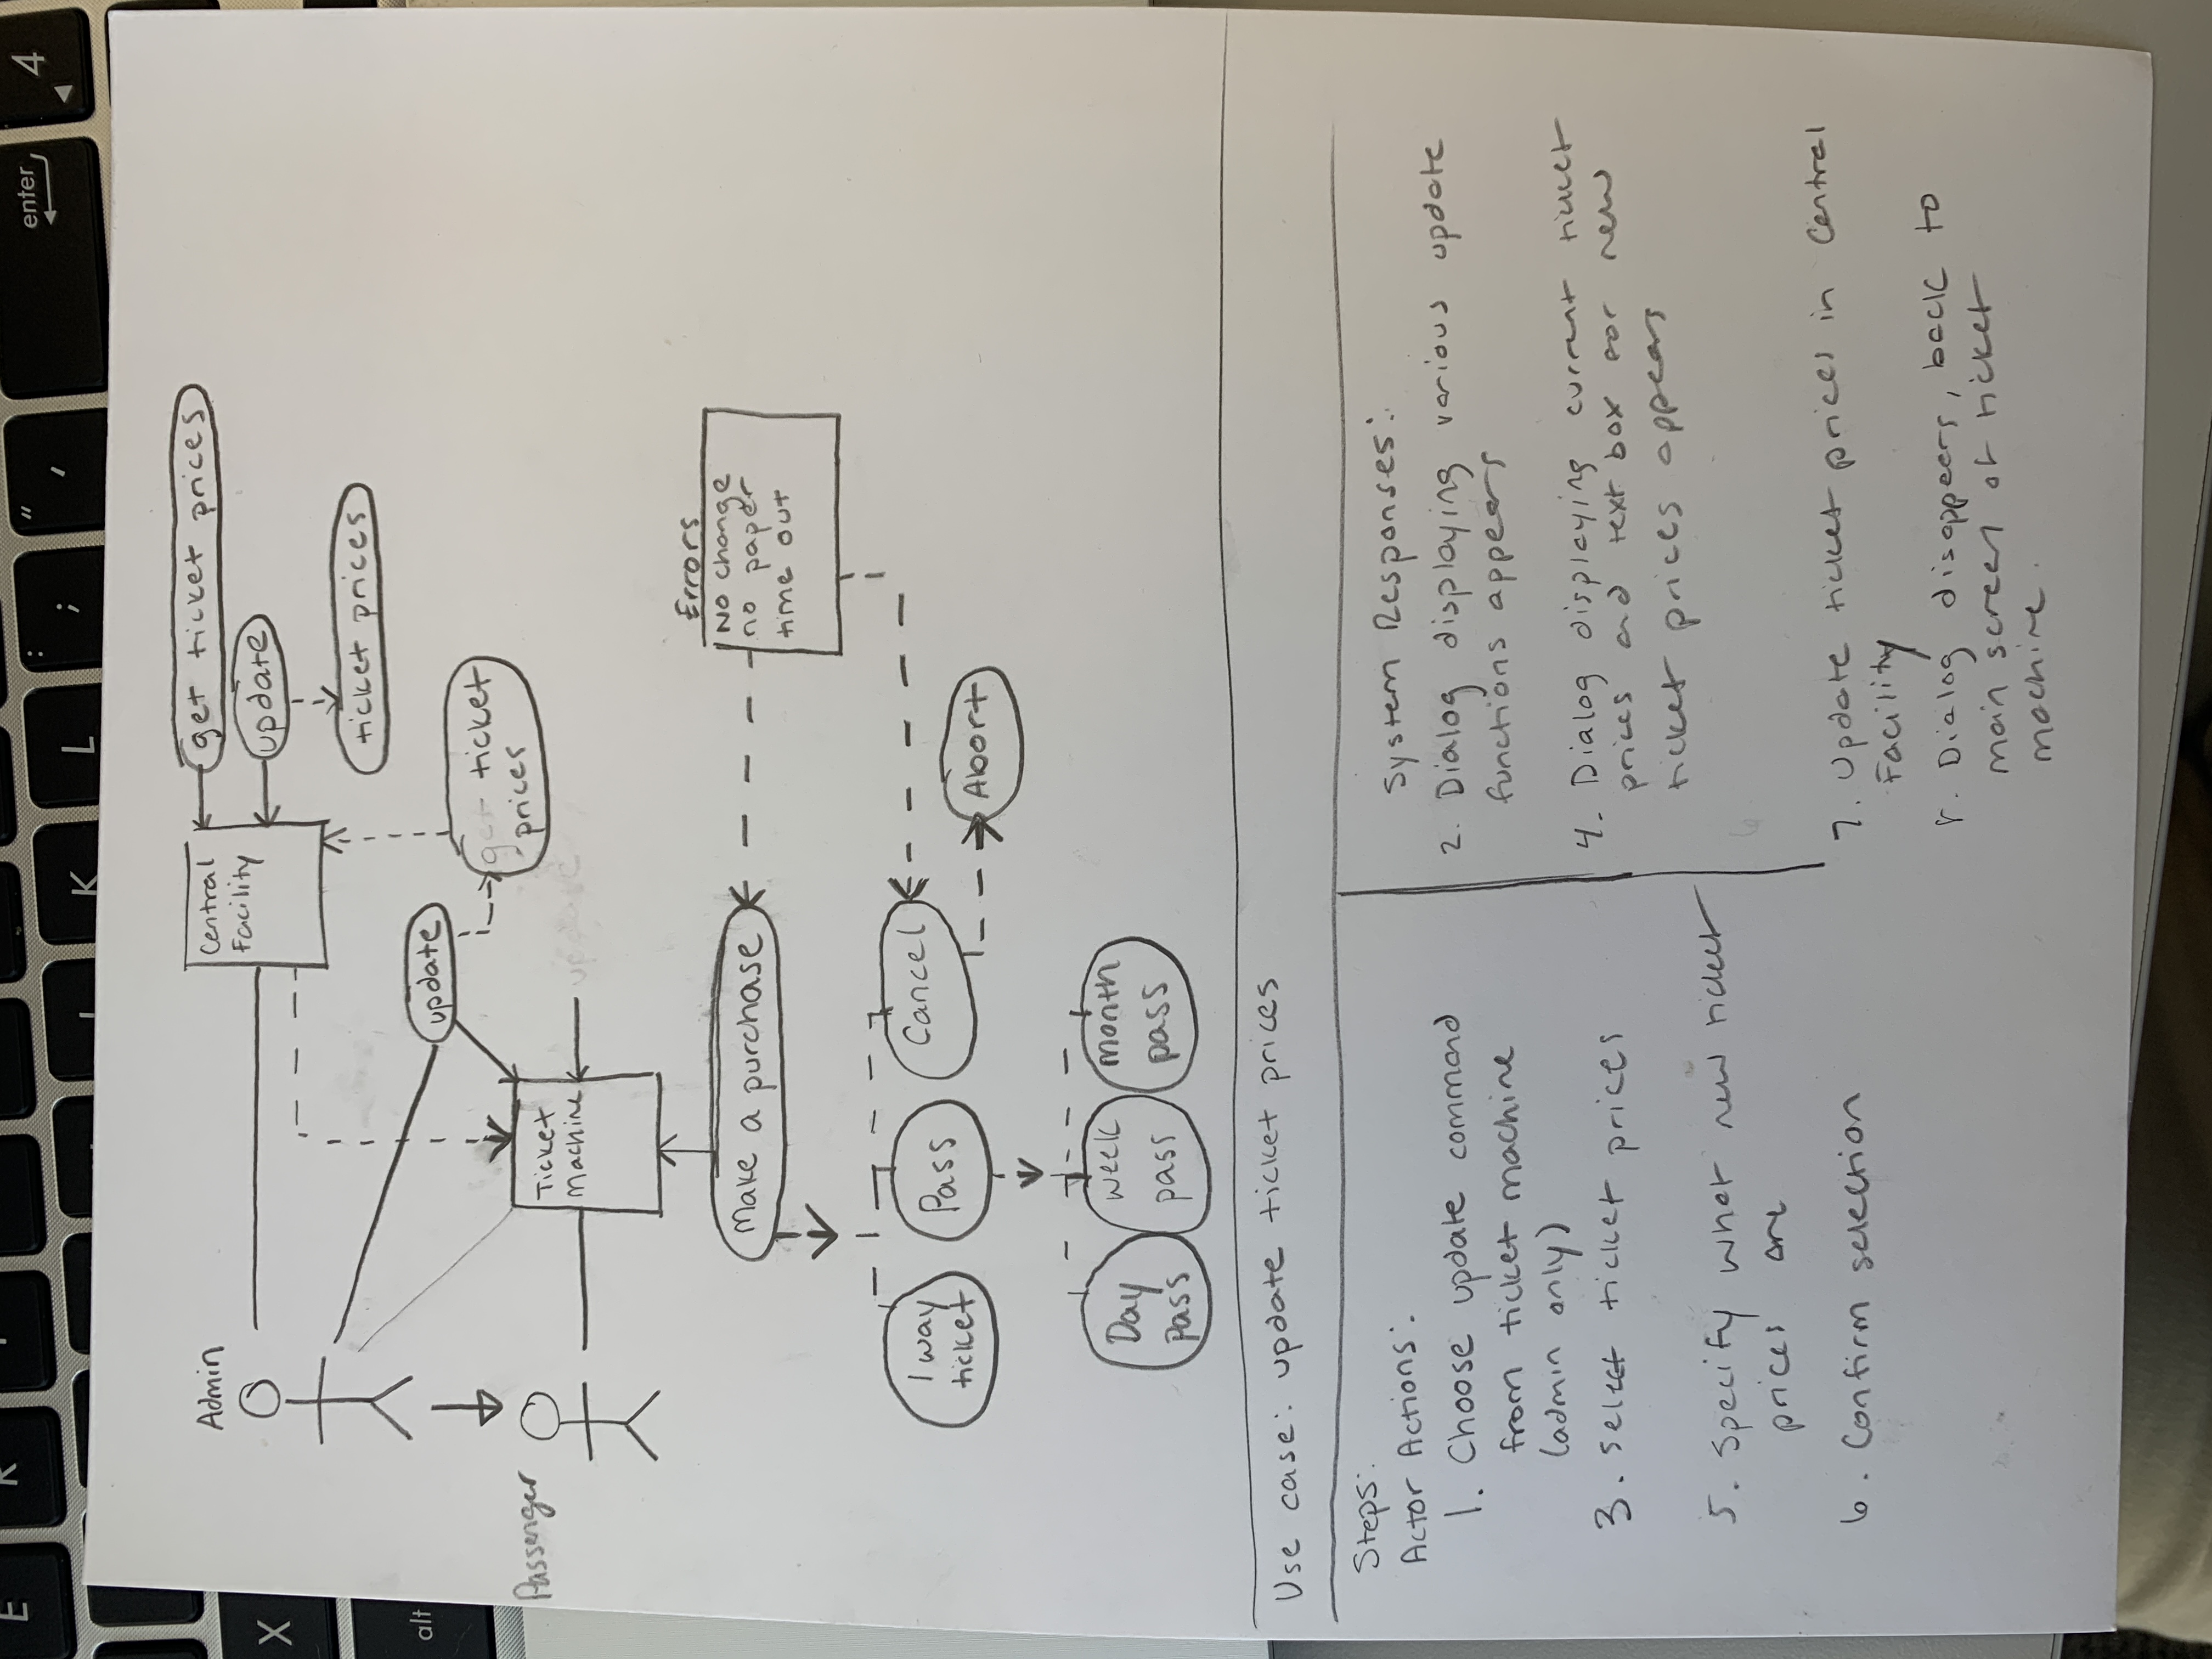 E
R
K
L
:
;
"
,
enter
4
X
alt
Admin
Central
Facility
get ticket prices
update
ticket prices
update
get ticket
prices
Passenger
Ticket
Machine
update
Make a purchase
Errors
No change
no paper
time out
1 way
ticket
Pass
Cancel
Abort
Day
Pass
week
pass
month
pass
Use case: update ticket prices
Steps:
Actor Actions:
1. Choose update command
from ticket machine
(admin only)
3. select ticket prices
5. Specify what new ticket
prices are
6. Confirm selection
System Responses:
2. Dialog displaying various update
functions appears
4. Dialog displaying current ticket
prices and text box for new
ticket prices appears
6
7. Update ticket prices in Central
Facility
8. Dialog disappears, back to
main screen of ticket
machine.